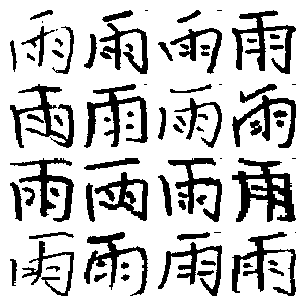 雨雨雨雨
雨雨雨雨
雨雨雨雨
雨雨雨雨